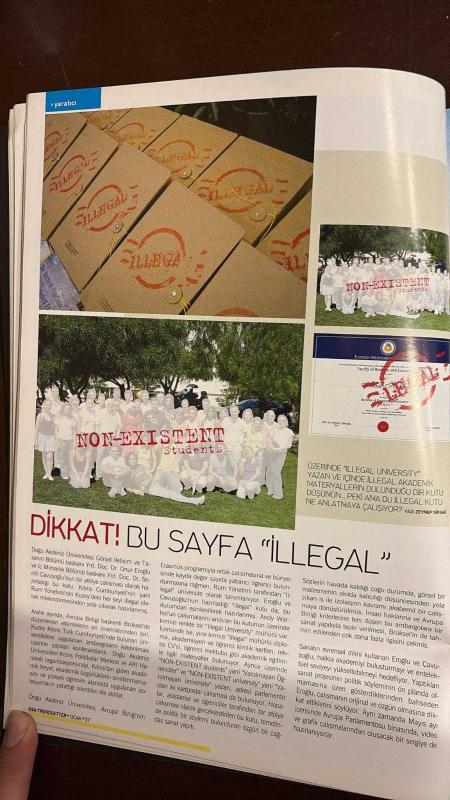 ›yaratıcı
ILLEGAL
ILLEGAL
ILLEGAL
ILLEGAL
ILLEGAL
NON-EXISTENT
Students
NON-EXISTENT
Students
ILLEGAL
ÜZERİNDE "ILLEGAL UNIVERSITY"
YAZAN VE İÇİNDE ILLEGAL AKADEMİK
MATERYALLERİN BULUNDUĞU BİR KUTU
DÜŞÜNÜN... PEKİ AMA DU ILLEGAL KUTU
NE ANLATMAYA ÇALIŞIYOR? YAZI ZEYNEP
DİKKAT! BU SAYFA "İLLEGAL"
Doğu Akdeniz Üniversitesi Görsel İletişim ve Ta-
sarım Bölümü başkanı Yrd. Doç. Dr. Onur Eroğlu
ve İç Mimarlık Bölümü başkanı Yrd. Doç. Dr.
Çavuşoğlu'nun bir atölye çalışması olarak
bu kutu, Kıbrıs Cumhuriyeti'nin yani
Rum Yönetimi'nin Kuzey'deki her şeyi illegal ola-
rak nitelendirmesinden yola çıkarak hazırlandı.
Aralık ayında, Avrupa Birliği başkenti Brüksel'de
düzenlenen etkinliklerin en önemlilerinden biri,
Kuzey Kıbrıs Türk Cumhuriyeti'nde bulunan üni-
versitelere uygulanan ambargoların kaldırılması
Doğu Akdeniz
Üniversitesi Kıbrıs Politikalar Merkezi ve ARI Ha-
reketi organizasyonunda, Kıbrıs'tan giden akade-
mik heyet, akademik özgürlüklerin sınırlanmama-
sını ve yüksek öğrenim alanında uygulanan izo-
lasyonların yarattığı sıkıntıları ele aldılar.
Doğu Akdeniz Üniversitesi, Avrupa Birliği'nin
Erasmus programıyla ortak çalışmasına ve bünye-
sinde kayda değer sayıda yabancı öğrenci bulun-
durmasına rağmen, Rum Yönetimi tarafından "il-
legal" üniversite olarak tanınıyor. Eroğlu ve
Çavuşoğlu'nun hazırladığı "illegal" kutu da, bu
durumdan esinlenerek hazırlanmış. Andy War-
hol'un çalışmalarını andıran bu kutunun üzerinde
kırmızı renkte bir "Illegal University" mühürü var.
İçerisinde ise, yine kırmızı "illegal" mühürlü diplo-
ma, akademisyen ve öğrenci kimlik kartları, rek-
törün CV'si, öğrenci mektubu gibi akademik eğitim-
le ilgili materyaller bulunuyor. Ayrıca üzerinde
"NON-EXISTENT Students" yani "Varolmayan Öğ-
renciler" ve "NON-EXISTENT University" yani "Va-
rolmayan Üniversite" yazan, adresi parlamento
olan iki kartpostal çalışması da bulunuyor. Hoca-
lar, asistanlar ve öğrenciler tarafından bir atölye
çalışması olarak gerçekleştirilen bu kutu, temelin-
de politik bir söylemi bulunduran özgün bir çağ-
daş sanat yapıtı.
Sözlerin havada kaldığı çoğu durumda, görsel bir
malzemenin akılda kalıcılığı düşüncesinden yola
çıkan iş ile izolasyon kavramı akademik bir çalış-
maya dönüştürülmüş. İnsan haklarına ve Avrupa
Birliği kriterlerine ters düşen bu ambargolara bir
sanat yapıtıyla tepki verilmesi, Brüksel'in de tah-
min edilenden çok daha fazla ilgisini çekmiş.
Sanatın evrensel dilini kullanan Eroğlu ve Çavu-
şoğlu, halkla akademiyi buluşturmayı ve entelek-
tüel seviyeyi yükseltmeyi hedefliyor. Yaptıkları
sanat projesinin politik söyleminin ön planda ol-
mamasına özen gösterdiklerinden bahseden
Eroğlu, çalışmanın orijinal ve özgün olmasına dik-
kat ettiklerini söylüyor. Aynı zamanda Mayıs ayı
içerisinde Avrupa Parlamentosu binasında, video
ve grafik çalışmalarından oluşacak bir sergiye de
hazırlanıyorlar
024 TRENDSETTER • OCAK '07